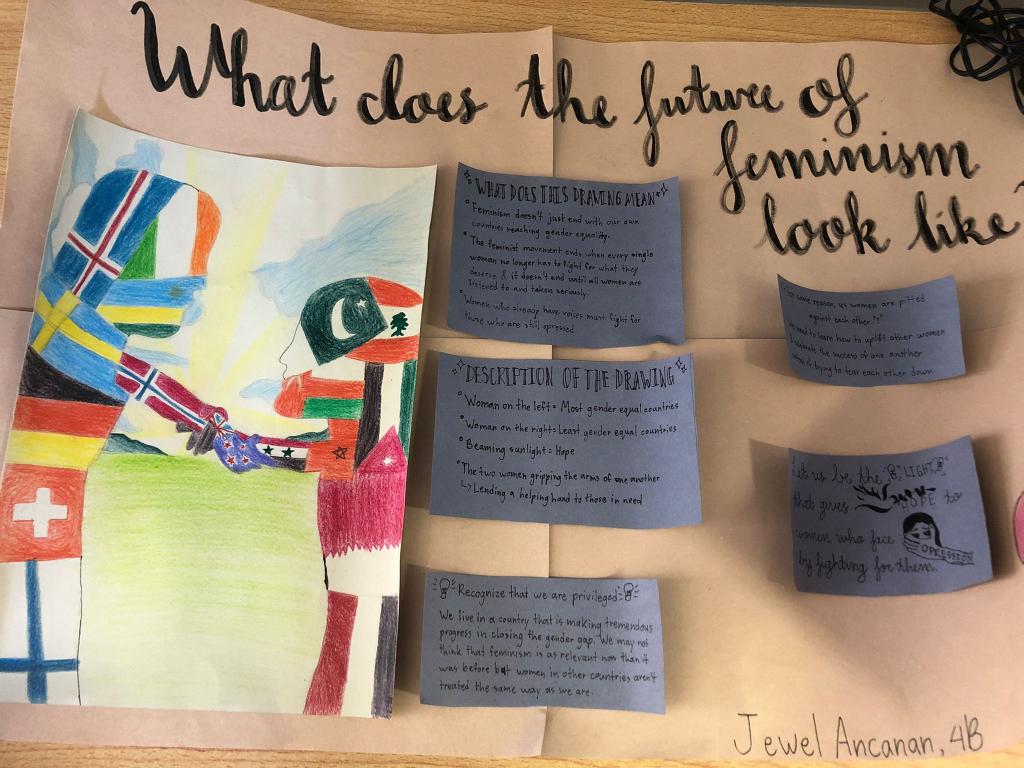 What does the future of
feminism
look like
"WHAT DOES THIS DRAWING MEAN"
• Feminism doesn't just end with our own
countries reaching gender equality.
• The feminist movement ends when every single
woman no longer has to fight for what they
deserve & it doesn't end until all women are
listened to and taken seriously.
• Women who already have voices must fight for
those who are still opressed.
"DESCRIPTION OF THE DRAWING"
• Woman on the left = Most gender equal countries
• Woman on the right = Least gender equal countries
• Beaming sunlight = Hope
• The two women gripping the arms of one another
↳ Lending a helping hand to those in need
Recognize that we are privileged
We live in a country that is making tremendous
progress in closing the gender gap. We may not
think that feminism is as relevant now than it
was before but women in other countries aren't
treated the same way as we are.
For some reason, us women are pitted
against each other!?
need to learn how to uplift other women
celebrate the success of one another
trying to tear each other down.
Let us be the LIGHT
that gives HOPE to
women who face
OPRESSION
by fighting for them.
Jewel Ancanan, 4B